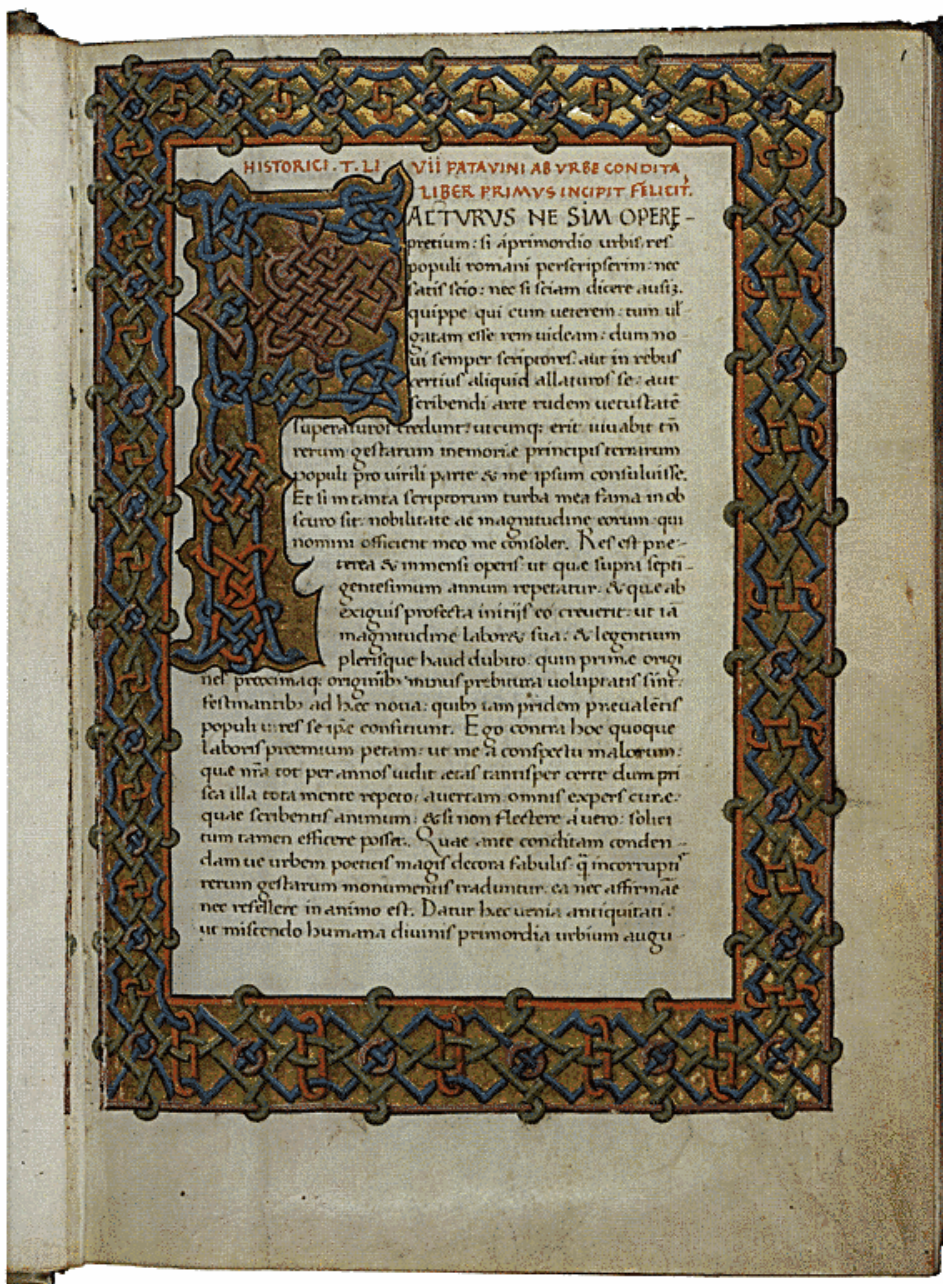 HISTORICI . T. LI VII PATAVINI AB VRBE CONDITA
LIBER PRIMVS INCIPIT FELICIT̃.
FACTVRVS NE SIM OPERĘ-
pretium: si aprimordio urbis res
populi romani perscripserim: nec
satis scio: nec si sciam dicere ausiʒ.
quippe qui cum ueterem: tum ul
gatam esse rem uideam: dum no-
ui semper scriptores: aut in rebus
certius aliquid allaturos se: aut
scribendi arte rudem uetustatē
superaturos credunt: utcunqꝫ erit iuuabit tñ
rerum gestarum memoriæ principis terrarum
populi pro uirili parte & me ipsum consuluisse.
Et si in tanta scriptorum turba mea fama in ob
scuro sit: nobilitate ac magnitudine eorum qui
nomini officient meo me consoler. Res est præ-
terea & immensi operis: ut quæ supra septi-
gentesimum annum repetatur: & quæ ab
exiguis profecta initijs eo creuerit: ut iā
magnitudine laboret sua: & legentium
plerisque haud dubito: quin primæ origi
nes proximaqꝫ originibꝰ minus prebitura uoluptatis sint:
festinantibꝰ ad hæc noua: quibꝰ iam pridem præualētis
populi uires se ip̃e conficiunt. Ego contra hoc quoque
laboris præmium petam: ut me a conspectu malorum:
quæ nr̃a tot per annos uidit ætas tantisper certe dum pri
sca illa tota mente repeto: auertam omnis expers curæ:
quae scribentis animum: & si non flectere a uero: solici
tum tamen efficere posset. Quae ante conditam conden-
dam ue urbem poeticis magis decora fabulis: q̃ incorruptis
rerum gestarum monumentis traduntur: ea nec affirmāe
nec refellere in animo est. Datur hæc uenia antiquitati:
ut miscendo humana diuinis primordia urbium augu-